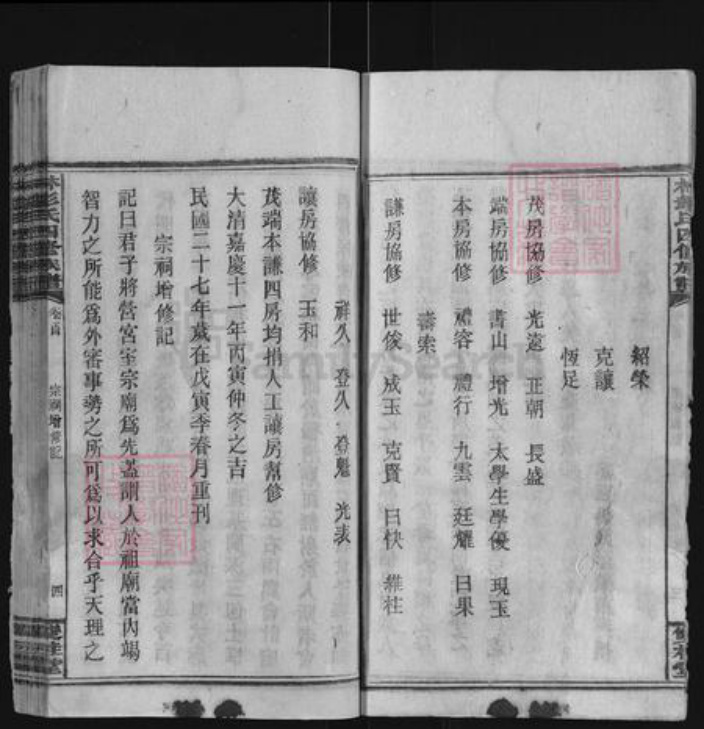 紹榮
克讓
恆足
茂房協修 光遠 正朝 長盛
端房協修 書山 增光 太學生學優 現玉
本房協修 禮容 體行 九雲 廷耀 日果
審索
謙房協修 世俊 成玉 克賢 日快 維柱
祥久 登久 登魁 光表
讓房協修 玉和
茂端本謙四房均捐人工讓房幫修
大清嘉慶十一年丙寅仲冬之吉
民國二十七年歲在戊寅季春月重刊
宗祠增修記
記曰君子將營宮室宗廟爲先蓋謂人於祖廟當內竭
智力之所能爲外審事勢之所可爲以求合乎天理之
彭氏四修族譜
卷首
宗祠增修記
四
FamilySearch